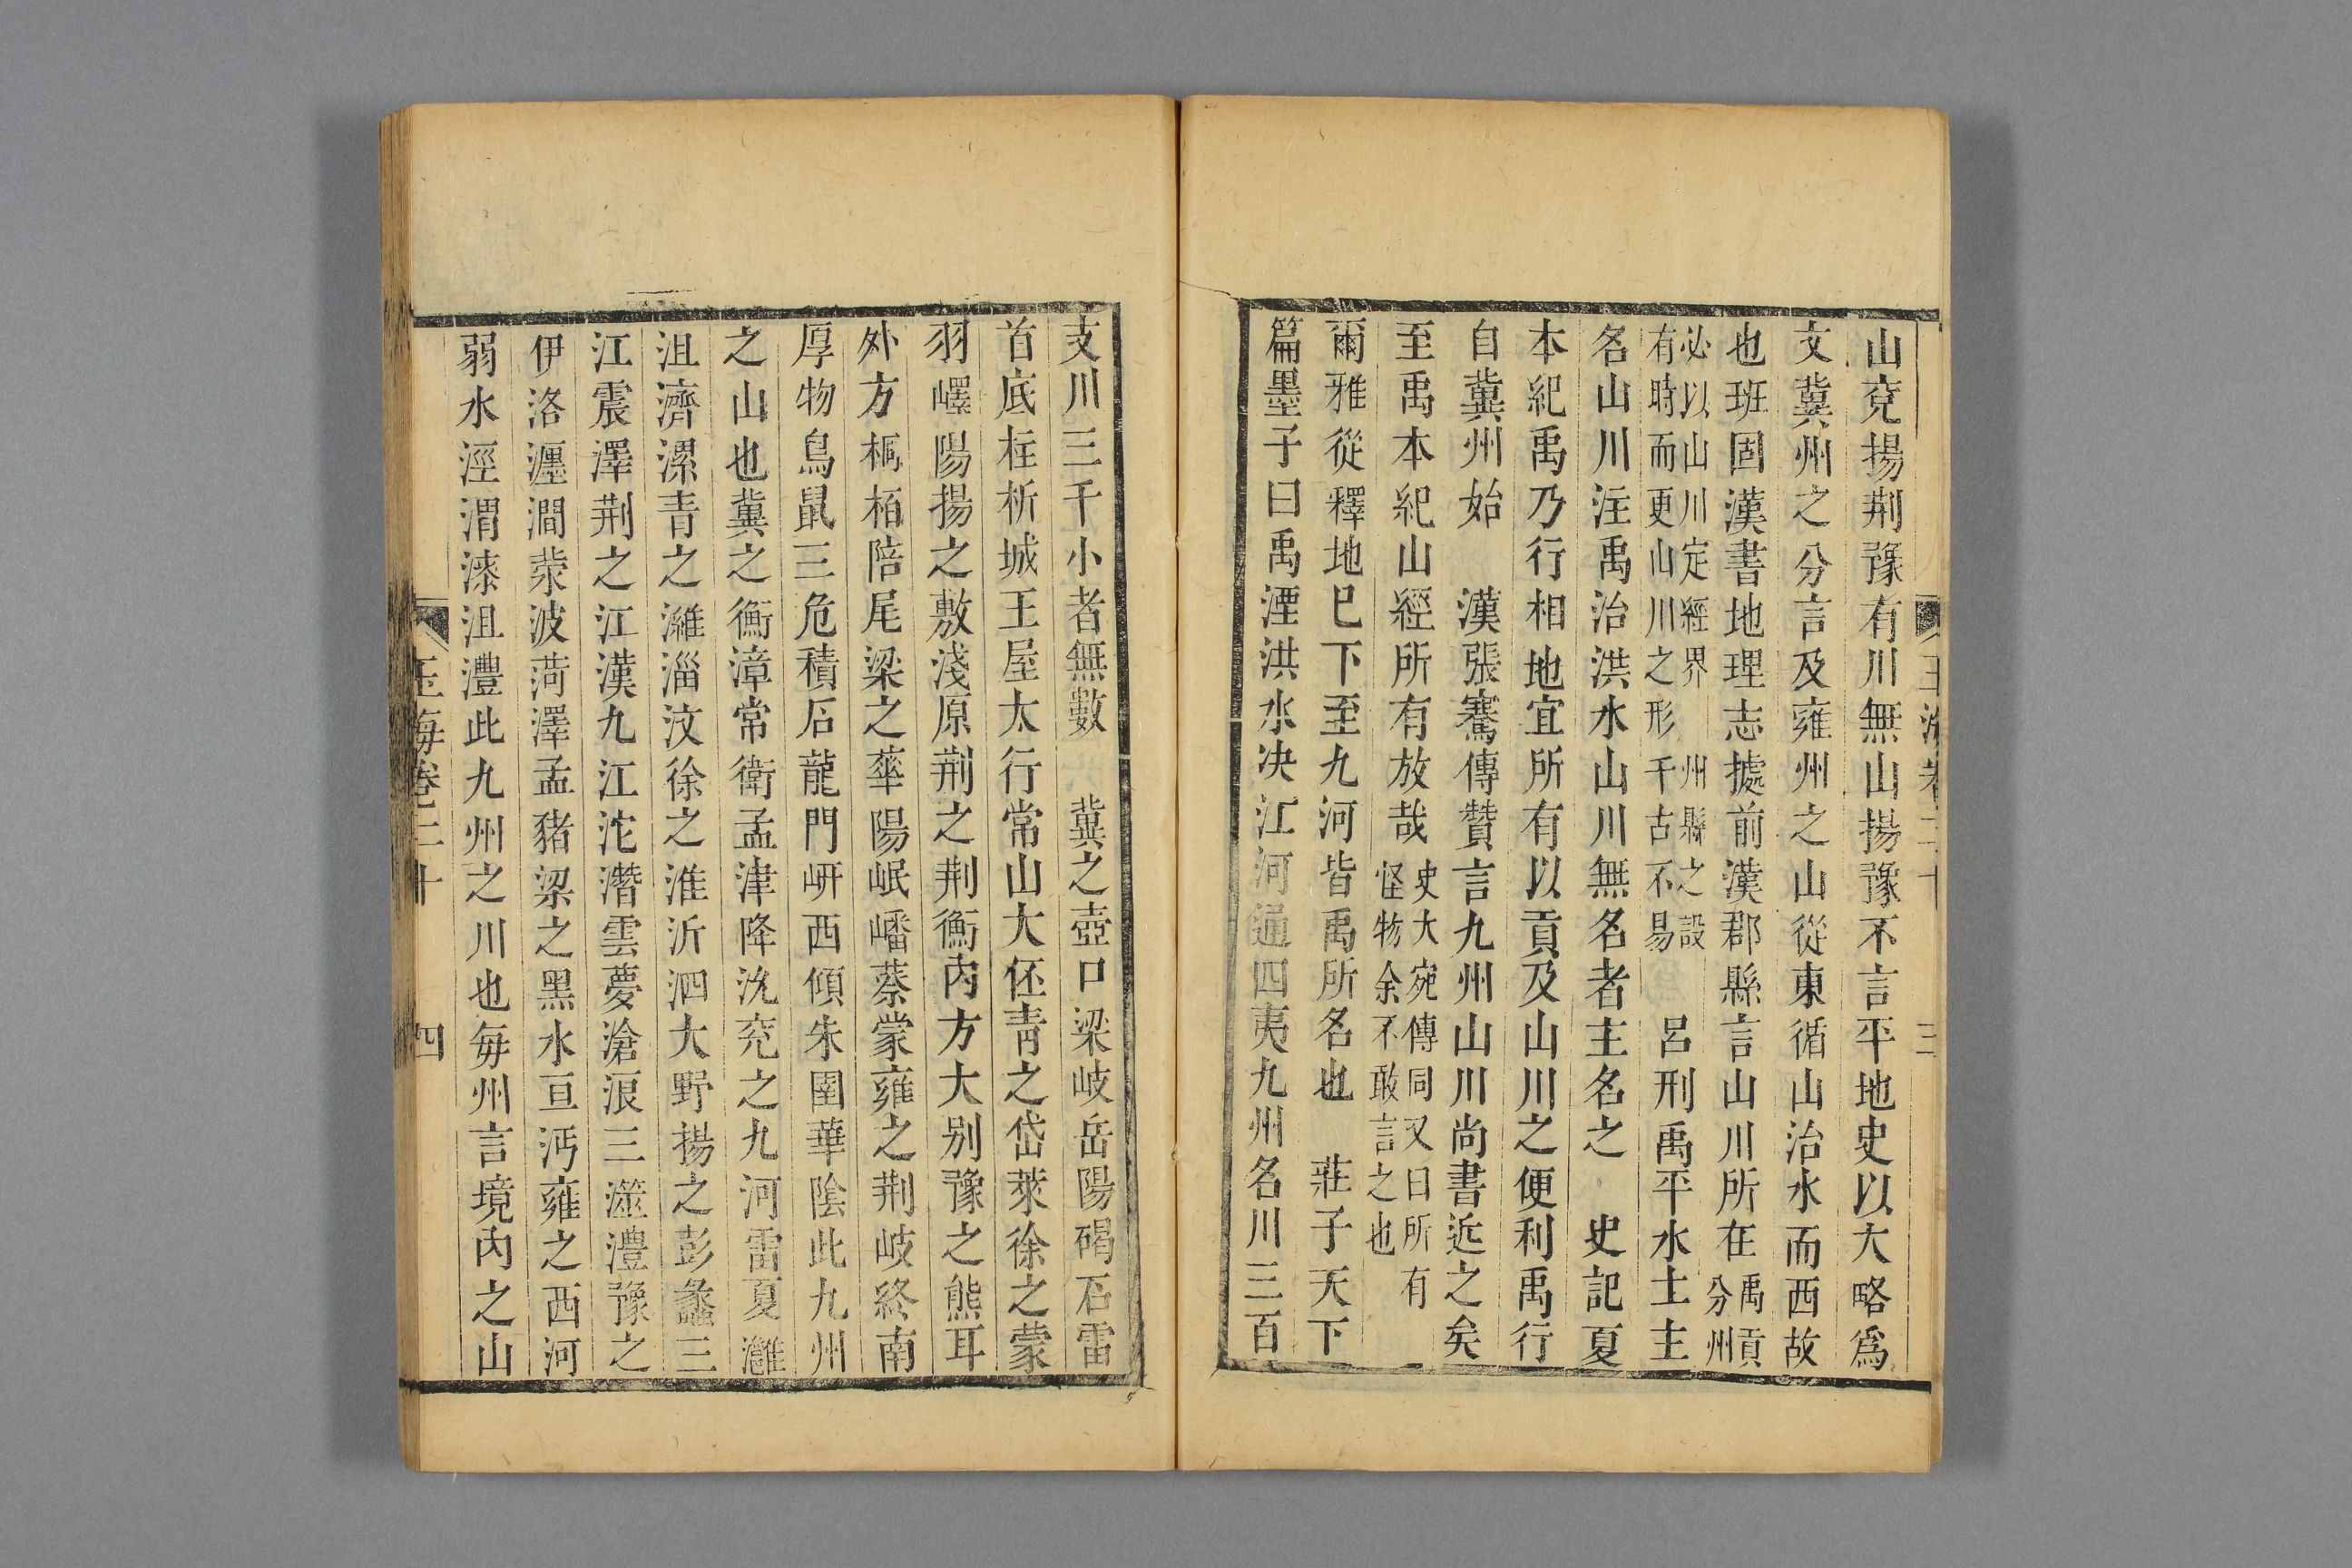 山兖揚荆豫有川無山揚豫不言平地史以大略爲
文冀州之分言及雍州之山從東循山治水而西故
也班固漢書地理志據前漢郡縣言山川所在禹貢分州
必以山川定經界州縣之設有時而更山川之形千古不易 呂刑禹平水土主
名山川注禹治洪水山川無名者主名之 史記夏
本紀禹乃行相地宜所有以貢及山川之便利禹行
自冀州始 漢張騫傳贊言九州山川尚書近之矣
至禹本紀山經所有放哉史大宛傳同又曰所有怪物余不敢言之也
爾雅從釋地巳下至九河皆禹所名也 莊子天下
篇墨子曰禹湮洪水决江河通四夷九州名川三百
支川三千小者無數 冀之壺口梁岐岳陽碣石雷
首底柱析城王屋太行常山大伾靑之岱萊徐之蒙
羽嶧陽揚之敷淺原荆之荆衡內方大别豫之熊耳
外方桐栢陪尾梁之華陽岷嶓蔡蒙雍之荆岐終南
厚物鳥鼠三危積石龍門岍西傾朱圉華陰此九州
之山也冀之衡漳常衛孟津降沇兖之九河雷夏灉
沮濟漯青之濰淄汶徐之淮沂泗大野揚之彭蠡三
江震澤荆之江漢九江沱潛雲夢滄浪三澨澧豫之
伊洛瀍澗滎波菏澤孟豬梁之黑水亘沔雍之西河
弱水涇渭漆沮灃此九州之川也每州言境內之山
玉海卷二十 四